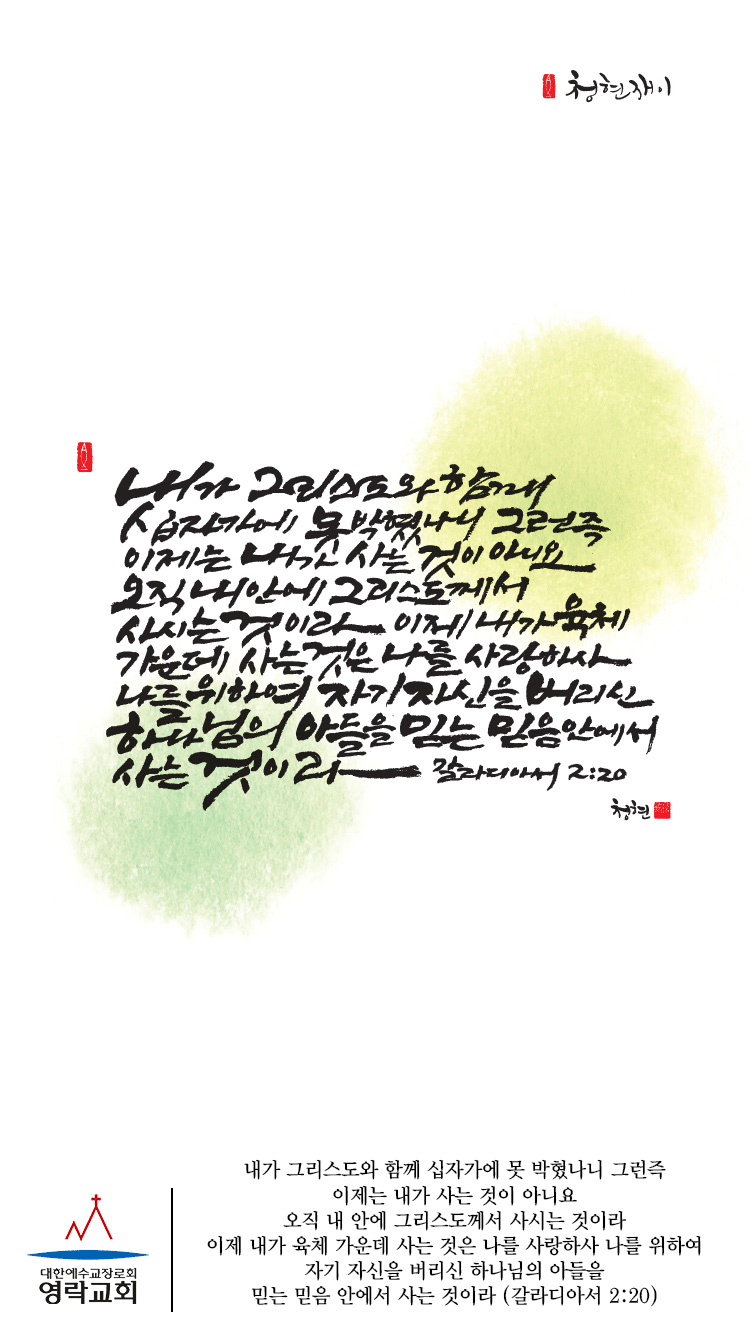 청현재이
내가 그리스도와 함께
십자가에 못 박혔나니 그런즉
이제는 내가 사는 것이 아니요
오직 내 안에 그리스도께서
사시는 것이라 이제 내가 육체
가운데 사는 것은 나를 사랑하사
나를 위하여 자기 자신을 버리신
하나님의 아들을 믿는 믿음 안에서
사는 것이라 갈라디아서 2:20
청현
내가 그리스도와 함께 십자가에 못 박혔나니 그런즉
이제는 내가 사는 것이 아니요
오직 내 안에 그리스도께서 사시는 것이라
이제 내가 육체 가운데 사는 것은 나를 사랑하사 나를 위하여
자기 자신을 버리신 하나님의 아들을
믿는 믿음 안에서 사는 것이라 (갈라디아서 2:20)
대한예수교장로회
영락교회